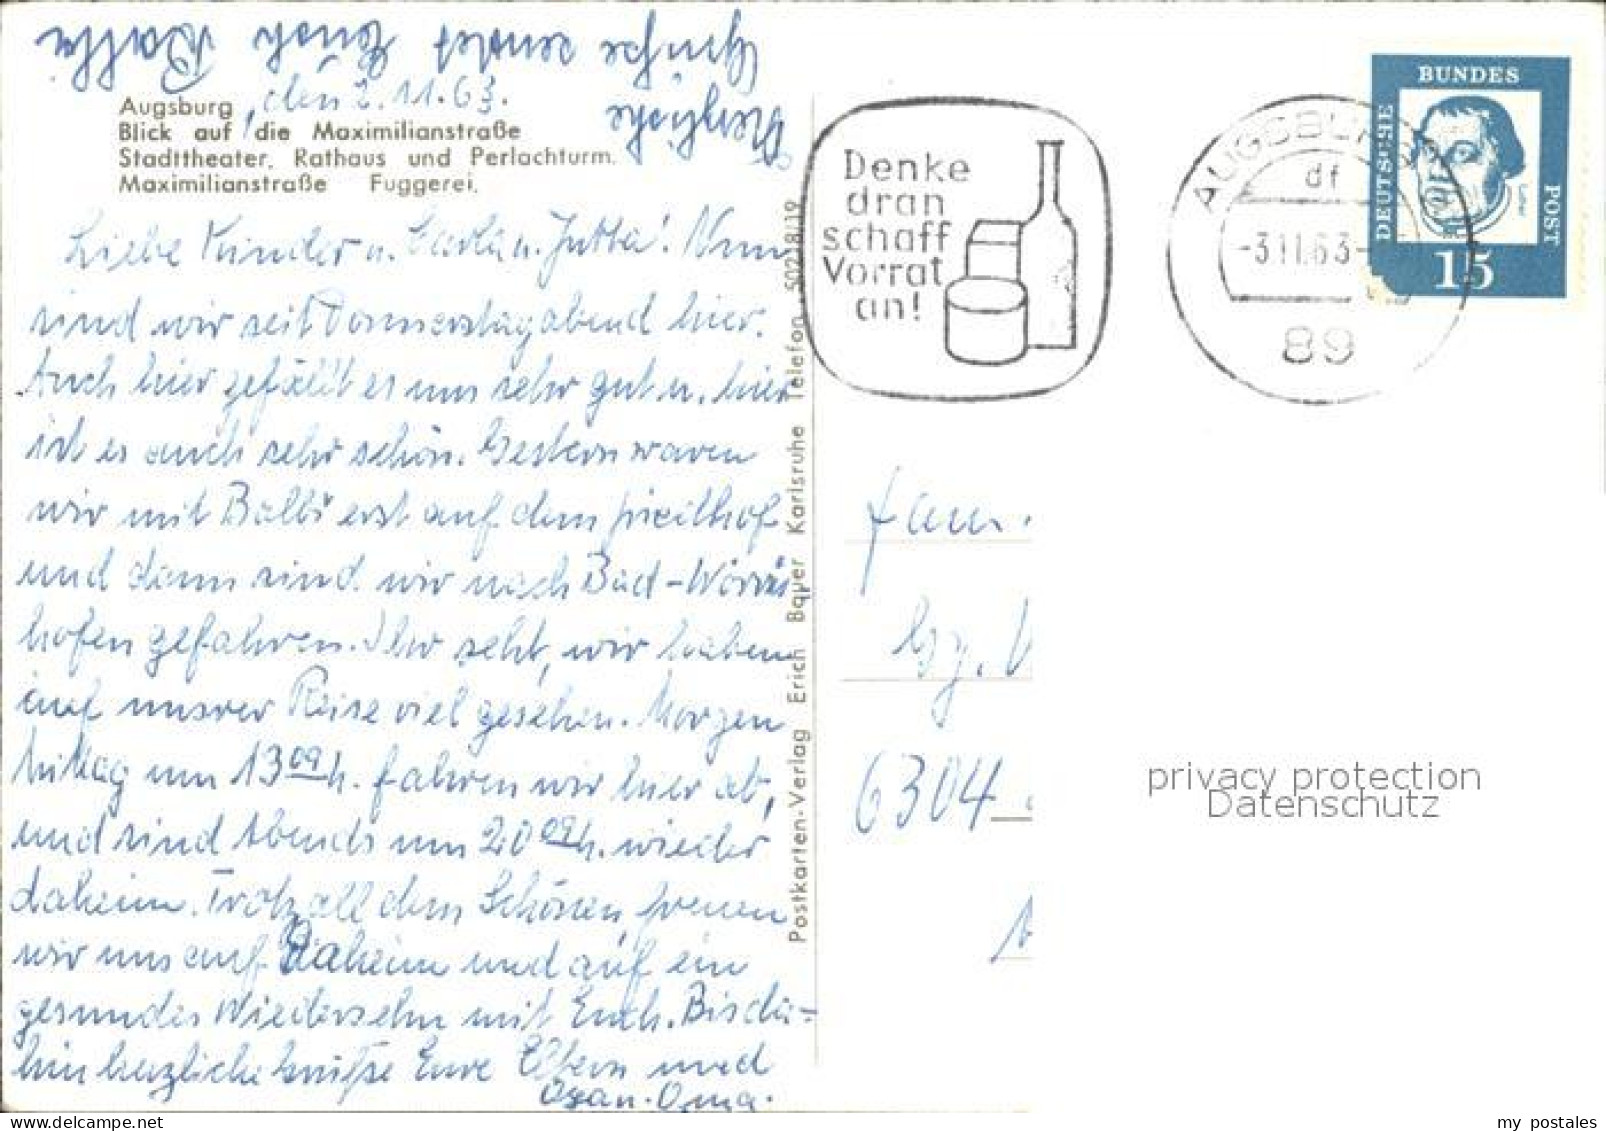 Herzliche
Grüße sendet Euch Balbi
Augsburg, den 2.11.63.
Blick auf die Maximilianstraße
Stadttheater, Rathaus und Perlachturm.
Maximilianstraße Fuggerei.
Liebe Kinder u. Carla u. Jutta! Nun
sind wir seit Donnerstagabend hier.
Auch hier gefällt es uns sehr gut u. hier
ist es auch sehr schön. Gestern waren
wir mit Balbi erst auf dem friedhof
und dann sind wir nach Bad-Wöris
hofen gefahren. Ihr seht, wir haben
auf unsrer Reise viel gesehen. Morgen
Mittag um 13 09 h. fahren wir hier ab,
und sind Abends um 20 09 h. wieder
daheim. Trotz all dem Schönen, freuen
wir uns auf Daheim und auf ein
gesundes Wiedersehn mit Euch. Bis da=
hin herzliche Grüße Eure Eltern und
Opa u. Oma.
Postkarten-Verlag Erich Bauer Karlsruhe Telefon 50218/19
Denke
dran
schaff
Vorrat
an!
AUGSBURG
df
-3.11.63-
89
DEUTSCHE
BUNDES
POST
15
fam.
6304
privacy protection
Datenschutz
my postales